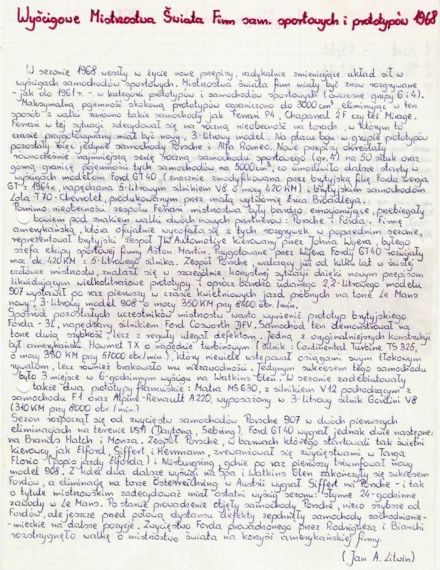 Wyścigowe Mistrzostwa Świata Firm sam. sportowych i prototypów 1968
W sezonie 1968 weszły w życie nowe przepisy, radykalnie zmieniające układ sił w
wyścigach samochodów sportowych. Mistrzostwa świata firm miały być znów rozgrywane
- jak do 1961r. - w kategorii prototypów i samochodów sportowych (ówczesne grupy 6 i 4).
Maksymalną pojemność skokową prototypów ograniczono do 3000 cm³, eliminując w ten
sposób z walki zarówno takie samochody jak Ferrari P4, Chaparral 2F czy też Mirage.
Ferrari w tej sytuacji zdecydował się na roczną nieobecność na torach, w którym to
czasie przygotowywany miał być nowy, 3-litrowy model. Na placu boju w grupie prototypów
pozostały więc jedynie samochody Porsche i Alfa Romeo. Nowe przepisy określały
równocześnie najmniejszą serię roczną samochodu sportowego (gr. 4) na 50 sztuk oraz
górną granicę pojemności tych samochodów na 5000cm³, co umożliwiło dalsze starty w
wyścigach modelom Ford GT40 (znacznie zmodyfikowana przez brytyjską filię Forda wersja
GT z 1964r, napędzana 5-litrowym silnikiem V8 o mocy 420 KM) i brytyjskim samochodom
Lola T70-Chevrolet, produkowanym przez małą wytwórnię Erica Broadleya.
Pomimo nieobecności zespołu Ferrari mistrzostwa były bardzo emocjonujące, przebiegały
bowiem pod znakiem walki dwóch równych partnerów: Porsche i Forda. Firmę
amerykańską, która oficjalnie wycofała się z tych rozgrywek w poprzednim sezonie,
reprezentował brytyjski zespół JW Automotive kierowany przez Johna Wyera, byłego
szefa ekipy sportowej firmy Aston Martin. Przygotowane przez Wyera Fordy GT40 rozwijały
moc ok. 420 KM z 5-litrowego silnika. Zespół Porsche, walczący już od kilku lat o światowe
czołowe mistrzostwo, znalazł się w szczególnie korzystnej sytuacji dzięki nowym przepisom
likwidującym wielkolitrażowe prototypy i oprócz bardzo udanego 2,2-litrowego modelu
907 wystawił po raz pierwszy w czasie kwietniowych jazd próbnych na torze Le Mans
nowy, 3-litrowy model 908 o mocy 350 KM przy 8400 obr./min.
Spośród pozostałych uczestników mistrzostw warto wymienić prototyp brytyjskiego
Forda - 3L, napędzany silnikiem Ford Cosworth DFV. Samochód ten demonstrował na
torze dużą szybkość, lecz z reguły ulegał defektom. Jedną z oryginalniejszych konstrukcji
był amerykański Howmet TX o napędzie turbinowym (silnik: Continental Turbine TS 325,
o mocy 330 KM przy 57000 obr./min.), który niewiele ustępował osiągami swym tłokowym
rywalom, lecz również brakowało mu niezawodności. Jedynym sukcesem tego samochodu
było 3 miejsce w 6-godzinnym wyścigu na Watkins Glen. W sezonie zadebiutowały
także dwa prototypy francuskie: Matra MS 630, z silnikiem V12 pochodzącym z
samochodu F1 oraz Alpine-Renault A220, wyposażony w 3-litrowy silnik Gordini V8
(310 KM przy 8000 obr./min.)
Sezon rozpoczął się od zwycięstw samochodów Porsche 907 w dwóch pierwszych
eliminacjach na terenie USA (Daytona, Sebring). Ford GT40 wygrał jednak dwie następne:
na Brands Hatch i Monza. Zespół Porsche, w barwach którego startowali tak świetni
kierowcy, jak Elford, Siffert i Herrmann, zrewanżował się zwycięstwami w Targa
Florio (popis jazdy Elforda) i Nürburgring, gdzie po raz pierwszy triumfował nowy
model 908. Z kolei dwa dalsze wyścigi na Spa i Watkins Glen zakończyły się sukcesem
Fordów, a eliminację na torze Österreichring w Austrii wygrał Siffert na Porsche - i tak
o tytule mistrzowskim zadecydować miał ostatni wyścig sezonu: słynne 24-godzinne
zawody w Le Mans. Początkowe prowadzenie objęły samochody Porsche, nieco szybsze od
Fordów, ale jeszcze przed połową dystansu defekty zepchnęły samochody zachodnio-
-niemieckie na dalsze pozycje. Zwycięstwo Forda prowadzonego przez Rodrigueza i Bianchi
rozstrzygnęło walkę o mistrzostwo świata na korzyść amerykańskiej firmy.
(Jan A. Litwin)